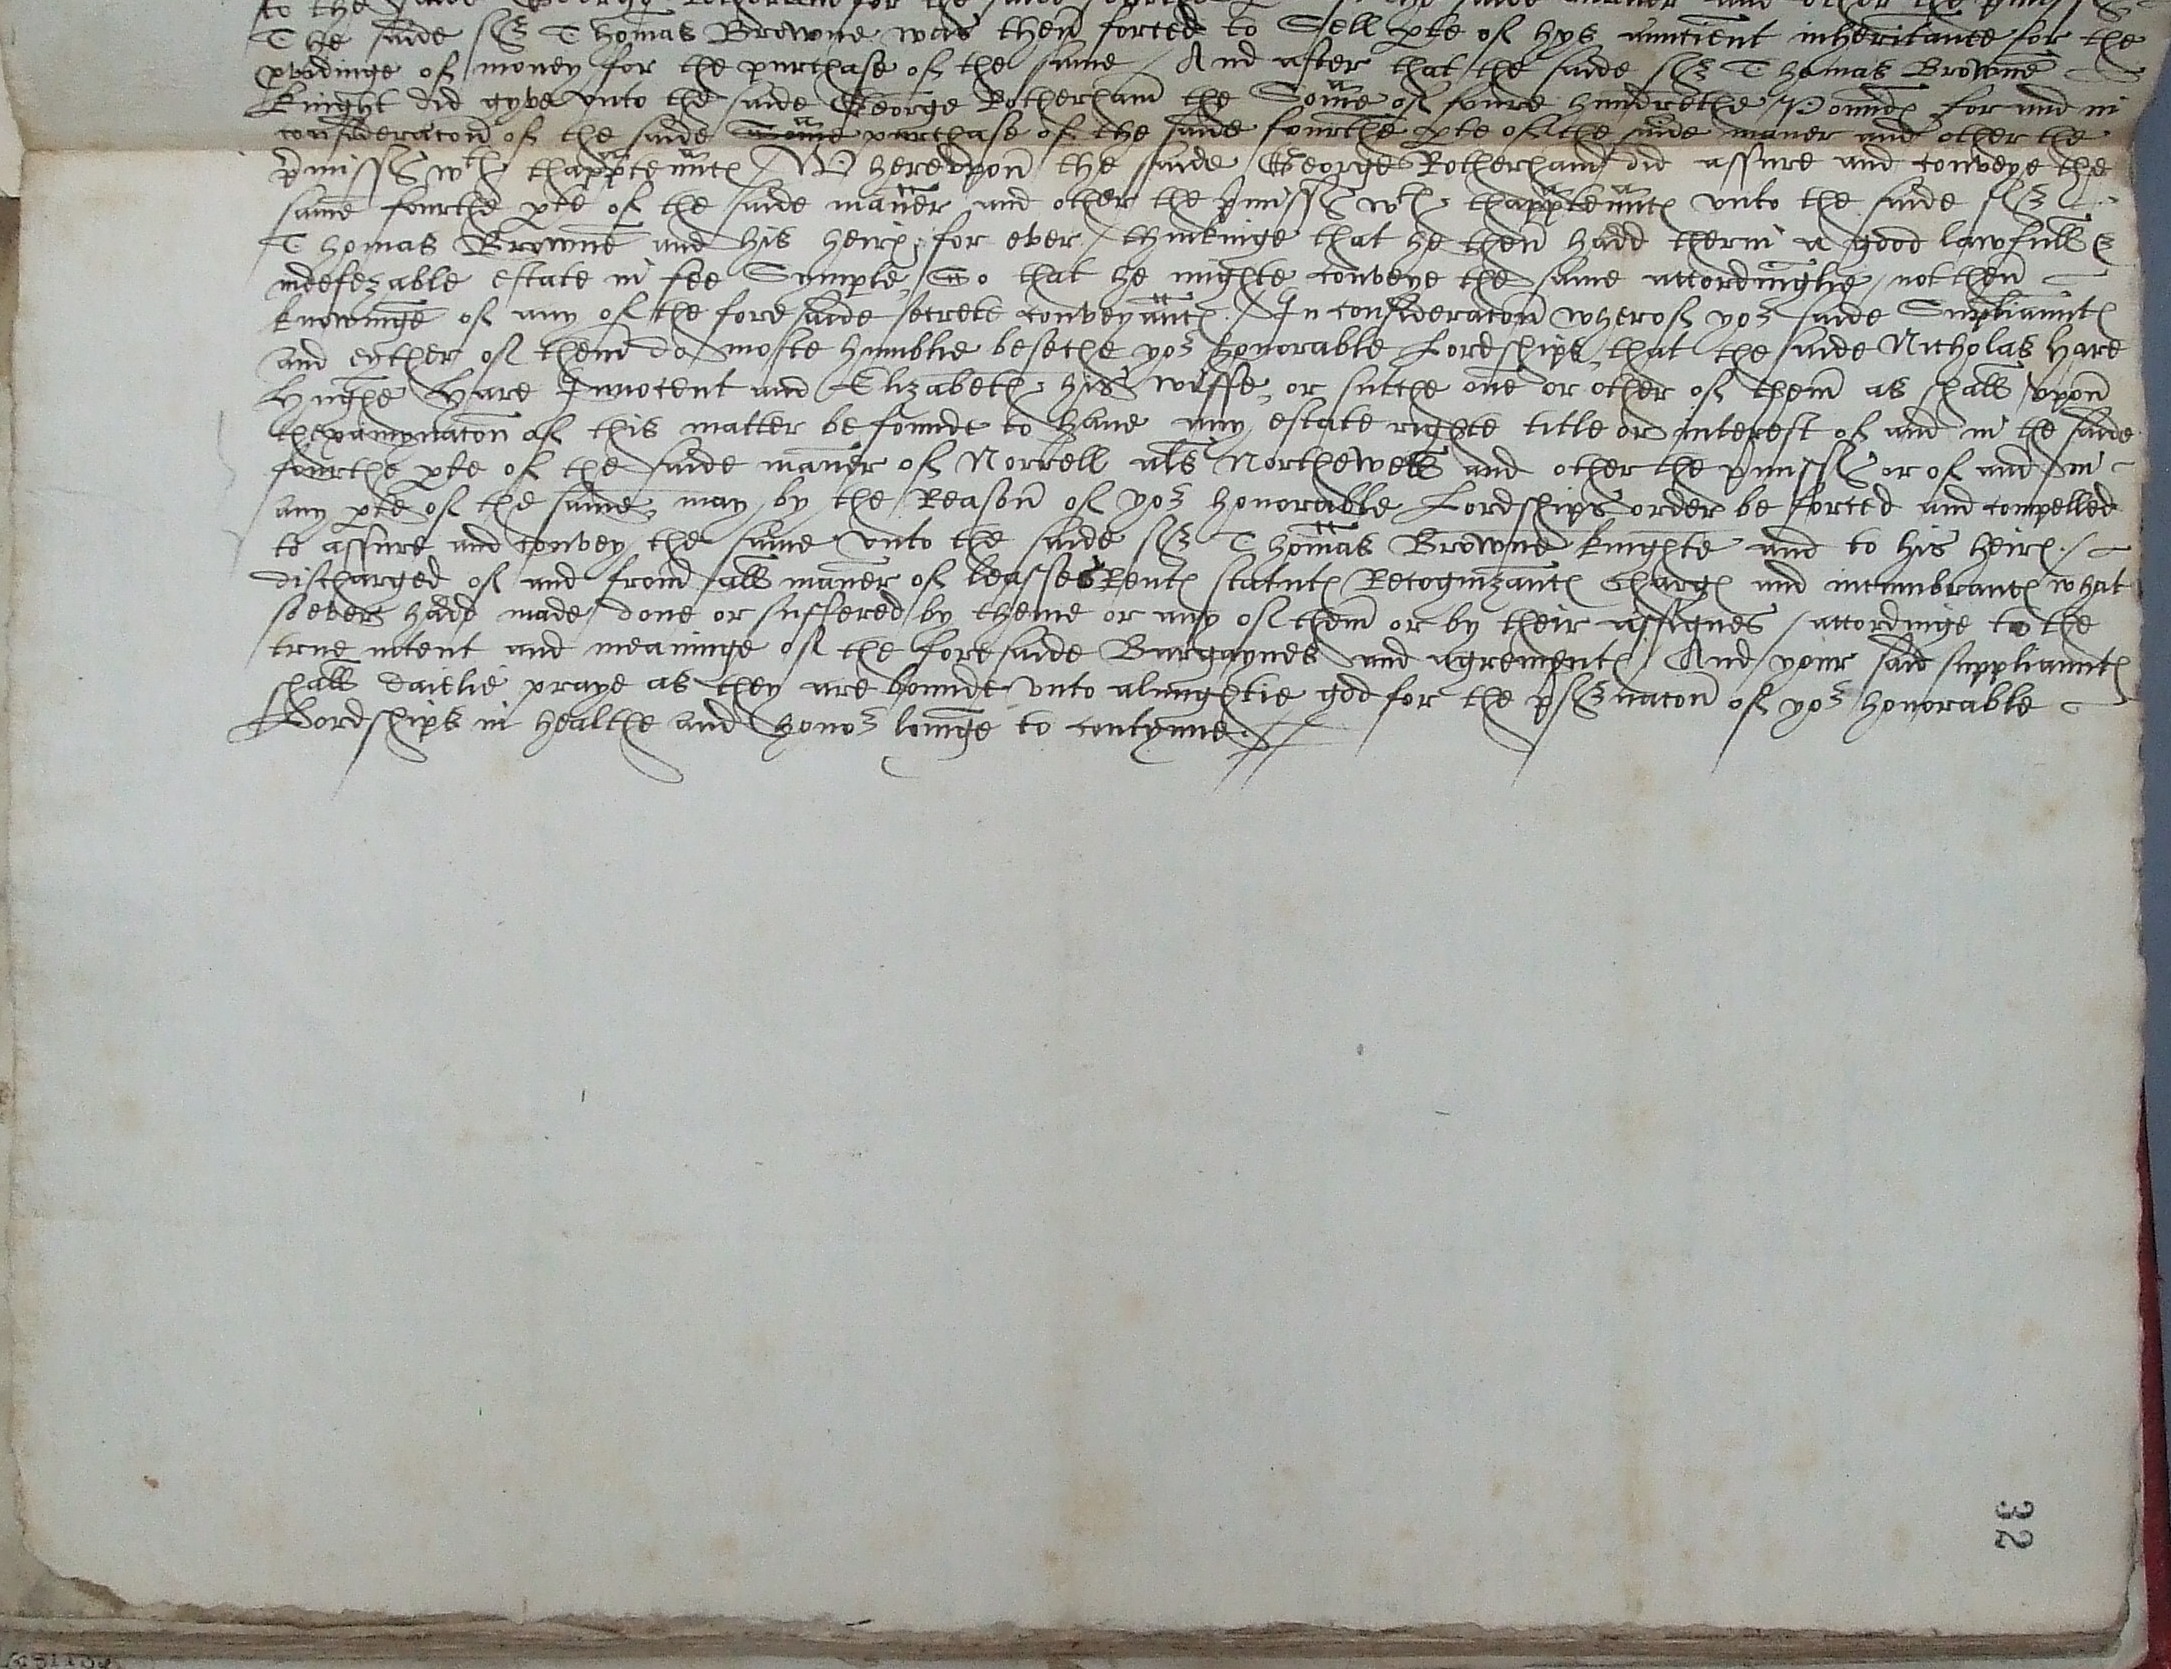 to the saide George Rotherham for the saide fourthe pte of the saide maner and other the pmiss
The saide Sr Thomas Browne was then forced to Sell pte of hys auncient inheritance for the
pvidinge of money for the purchase of the same / And after that the saide Sr Thomas Browne
knight did gyve vnto the saide George Rotherham the Some of foure hundrethe Pounds for and in
consideracon of the saide Some purchase of the saide fourthe pte of the saide maner and other the
pmiss wth thapptennc / Wherevpon the saide George Rotherham did assure and conveye the
same fourthe pte of the saide manner and other the pmiss wth thapptennc vnto the saide Sr
Thomas Browne and his heires for ever / thinkinge that he then hadd therin a good lawfull &
indefezable estate in fee Symple, So that he mighte conveye the same accordinglie, not then
knowinge of any of the foresaide secrete conveyances. / In consideracon wherof yor saide Suppliauntes
and eyther of them do moste humblie beseche yor honorable Lordships, that the saide Nicholas Hare
Hughe Hare Innocent and Elizabeth his wiffe, or suche one or other of them as shall vpon
thexamynacon of this matter be founde to have any estate righte title or interest of and in the saide
fourthe pte of the saide maner of Norrell als Northewell and other the pmiss or of and in
any pte of the same, may by the Reason of yor honorable Lordships order be forced and compelled
to assure and convey the same vnto the saide Sr Thomas Browne knighte and to his heires. /
discharged of and from all maner of leasses Rentes statutes Recognizances Charges and incumbrances what
soever hadd made done or suffered by theme or any of them or by their assignes / accordinge to the
true intent and meaninge of the foresaide Bargaynes and agrementes / And your said suppliauntes
shall dailie praye as they are bounde vnto almightie god for the psrvacon of yor honorable
Lordships in healthe and honor longe to contynue. //
32